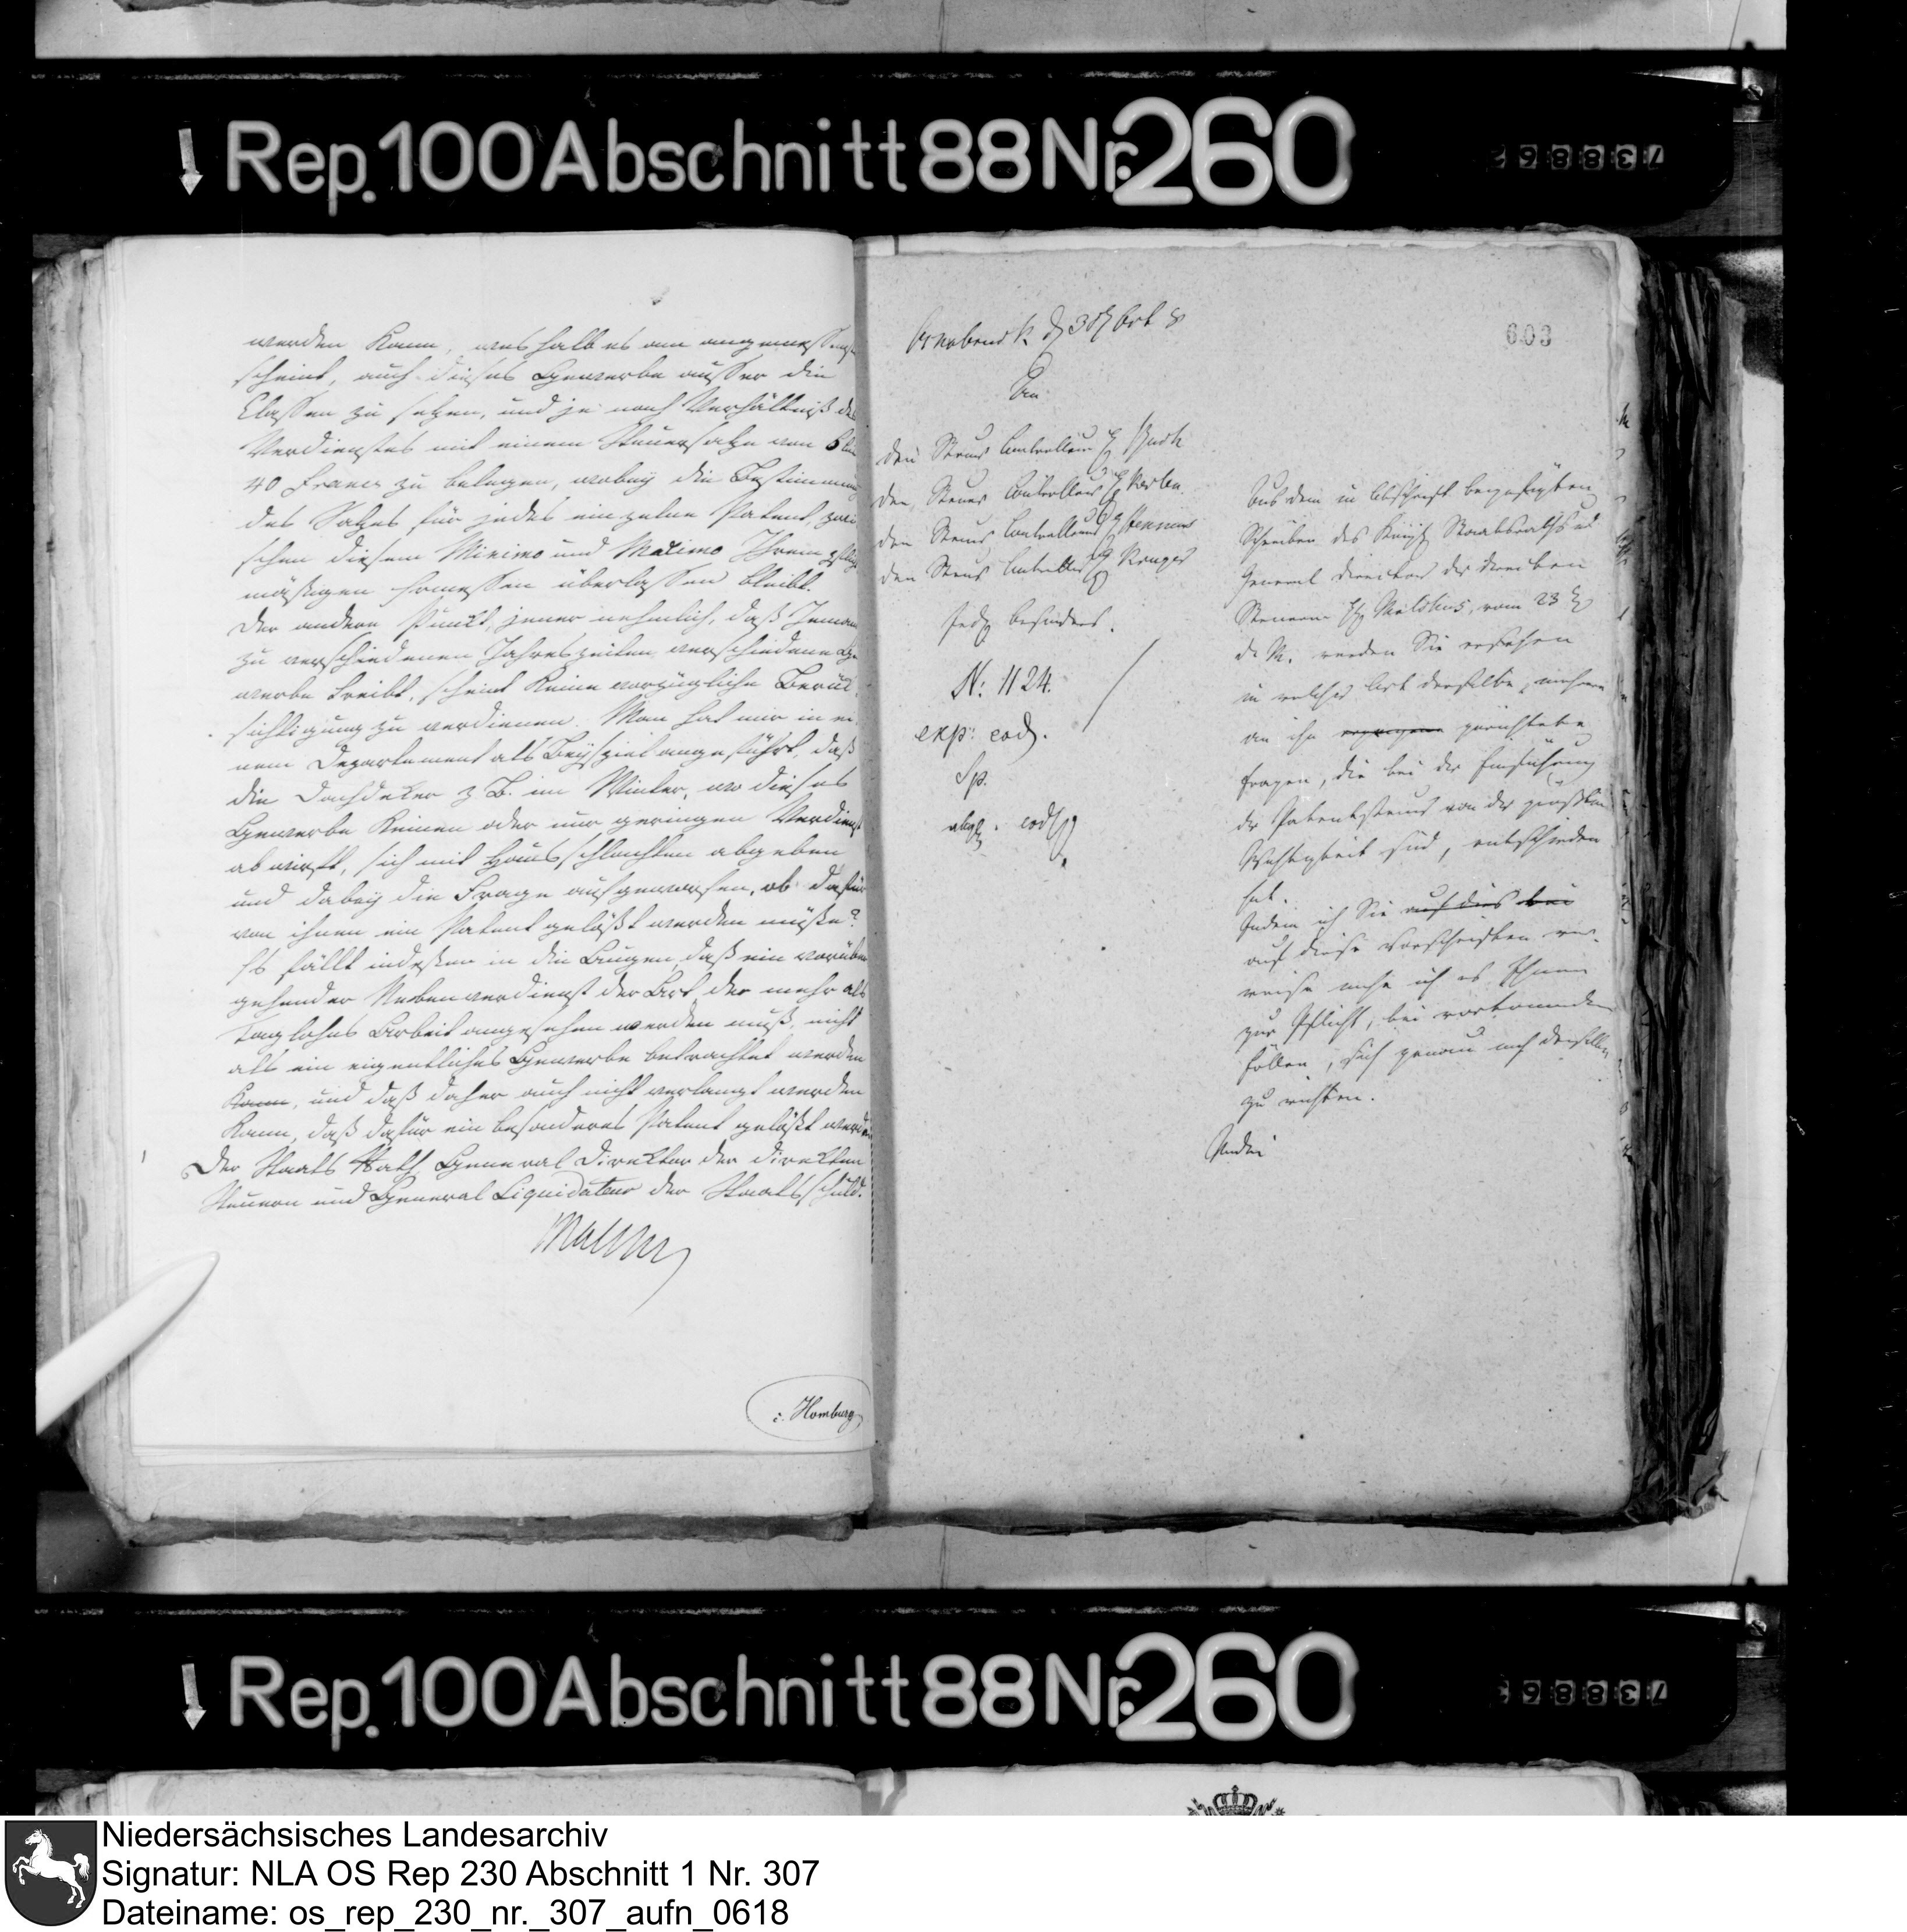 Rep. 100 Abschnitt 88 Nr. 260
738862
werden kann, weshalb es am angemessenst
scheint, auch dieses Gewerbe ausser die
Classen zu setzen, und je nach Verhältniß des
Verdienstes mit einem Steuersatze von 6 bis
40 Francs zu belegen, wobey die Bestimmung
des Satzes für jedes einzelne Patent, zwi
schen diesem Minimo und Maximo Ihrem pflicht
mäßigen Ermessen überlassen bleibt.
Der andere Punkt, jener nehmlich, daß Jemand
zu verschiedenen Jahreszeiten verschiedene Ge
werbe treibt, scheint keine vorzügliche Berück
sichtigung zu verdienen. Man hat mir in ei
nem Departement als Beyspiel angeführt, daß
die Dachdeker z. B. im Winter, wo dieses
Gewerbe keinen oder nur geringen Verdienst
abwirft, sich mit Hausschlachten abgeben
und dabey die Frage aufgeworfen, ob dafür
von ihnen ein Patent gelößt werden müße?
Es fällt indeßen in die Augen, daß ein vorüber
gehender Nebenverdienst der Art, der mehr als
Taglohns Arbeit angesehen werden muß, nicht
als ein eigentliches Gewerbe betrachtet werden
kann, und daß daher auch nicht verlangt werden
kann, daß dafür ein besonderes Patent gelößt werde.
Der Staats Rath, General Direktor der direkten
Steuern und General Liquidateur der Staatsschuld.
Malchus
i. Homburg
603
Osnabrück d 3 8
An
den Steuer Controlleur
den Steuer Controlleur
den Steuer Controlleur
den Steuer Controlleur
besonders.
N: 1124.
exp: eod.
Sp.
abgg. eod.
Aus dem in Abschrift beigefügten
Schreiben des Königl Staatsraths und
General Direktors der direkten
Steuern H Malchus, vom 23
d. M. werden Sie ersehen
in welcher Art derselbe, mehrere
an ihn gerichtete
Fragen, die bei der Einführung
der Patentsteuer von der größten
Wichtigkeit sind, entschieden
hat.
Indem ich Sie auf dies bei
auf diese Vorschriften ver-
weise mache ich es Ihnen
zur Pflicht, bei vorkommenden
Fällen, sich genau nach denselben
zu richten.
Rep. 100 Abschnitt 88 Nr. 260
738863
Niedersächsisches Landesarchiv
Signatur: NLA OS Rep 230 Abschnitt 1 Nr. 307
Dateiname: os_rep_230_nr._307_aufn_0618